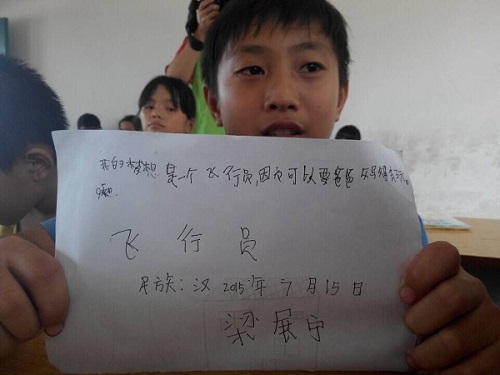 我的梦想是一个飞行员,因为可以要爸爸
飞行员
民族:汉 2015年7月15日
梁展宁